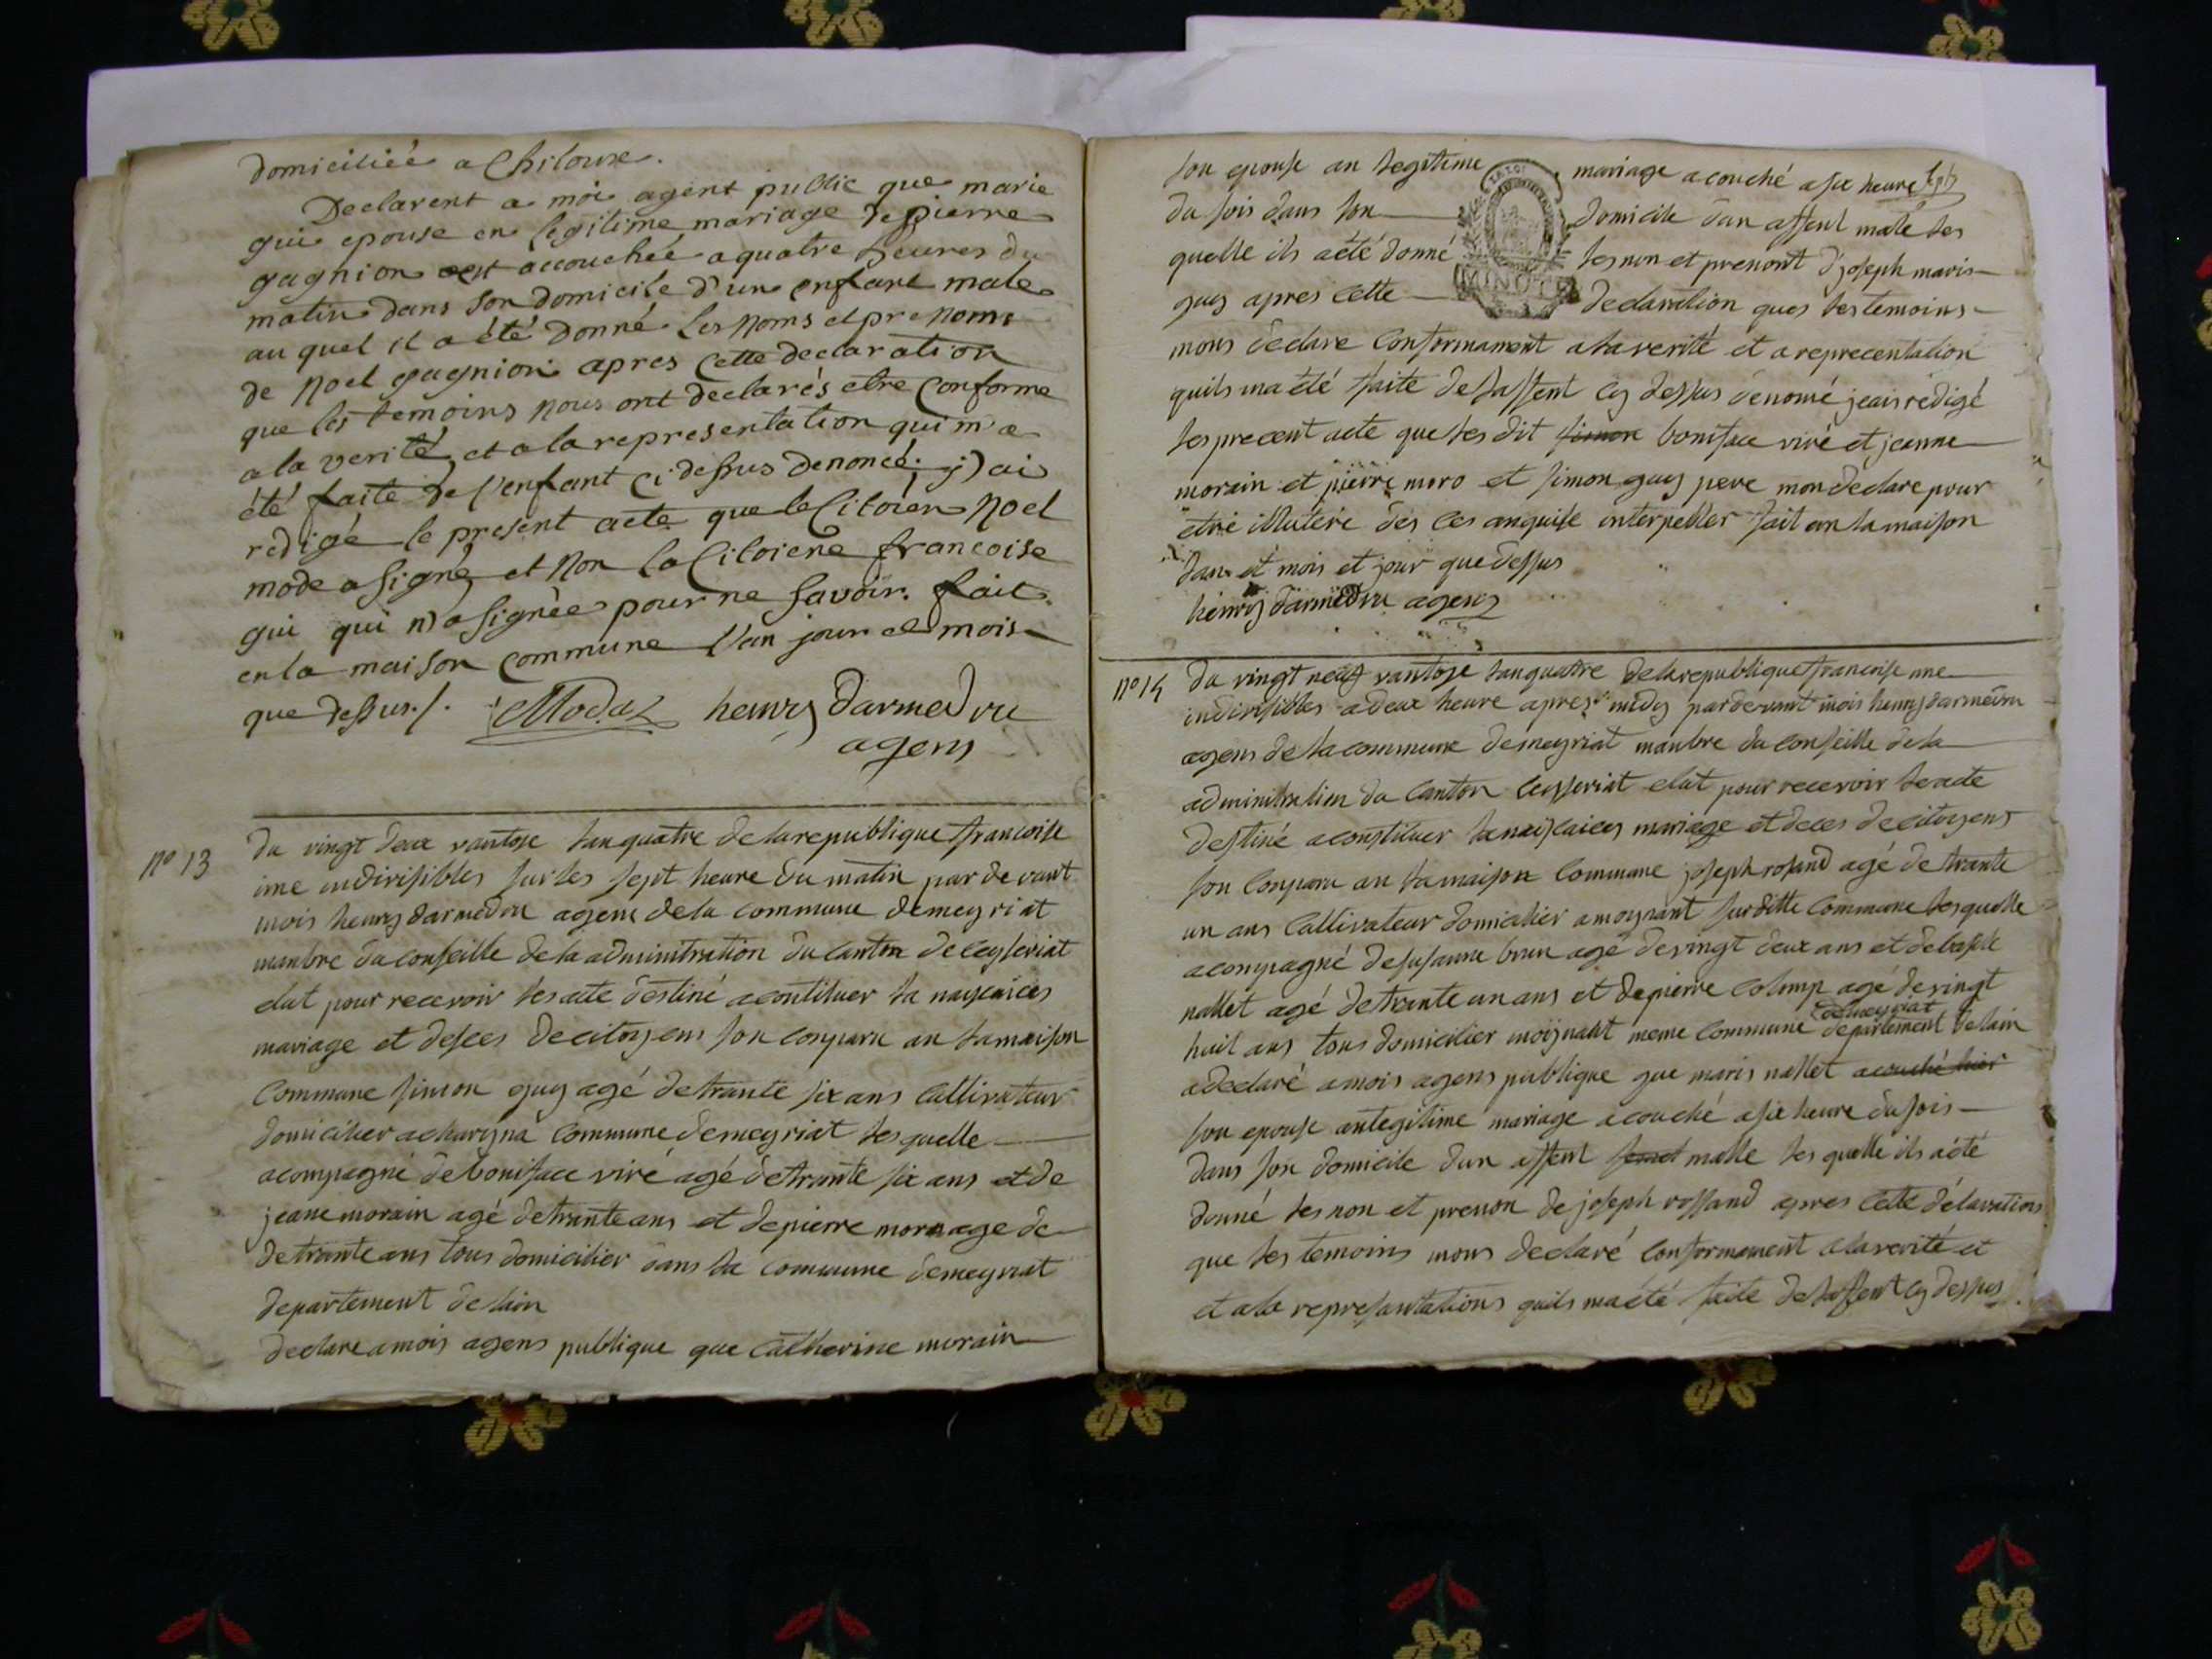 domiciliée a Chiloure.
Declarent a moi agent public que marie
gui epouse en legitime mariage de pierre
gagnion est accouchée a quatre heures du
matin dans son domicile d'un enfant male
au quel il a été donné les noms et prenoms
de Noel gagnion apres cette declaration
que les temoins nous ont declarés etre conforme
a la verité et a la representation qui m'a
été faite de l'enfant ci dessus denoncé j'ai
redigé le present acte que le Citoien Noel
mode a signé et Non la Citoiene francoise
gui qui n'a signée pour ne savoir. fait
en la maison commune l'an jour et mois
que dessus./. Modas henry darmedru
agens
n° 13 du vingt deux vantose lan quatre de la republique francoise
ime indivisibles sur les sept heure du matin par devant
mois henry darmedru agens de la commune demeyriat
manbre du conseille de la adminitration du canton de ceyseriat
elut pour recevoir les acte destiné a contituer la nayçaices
mariage et desces de citoyens son conparu an la maison
commune simon guy agé de trante six ans cultivateur
domicilier a charyna commune demeyriat lesquelle
acompagné de boniface viré agé de trante six ans et de
jeane morain agé de trante ans et de pierre moro age de
de trante ans tous domicilier dans la commune demeyriat
departement de lain
declare a mois agens publique que catherine morain
son epouse an legitime mariage acouché a six heure
du sois dans son domicile dun assent male les
quelle ils a été donné les non et prenont d joseph maris
guy apres cette declaration ques les temoins
mons declare conformament a la verité et a reprecentation
quils ma été faite de lassent cy dessus denomé jeais redigé
les precent acte que les dit simon boniface viré et jeanne
morain et pierre moro et simon guy pere mon declare pour
etre illutere des ces anquise interpeller fait an la maison
dan et mois et jour que dessus
henry darmedru agens
n° 14 du vingt neuf vantose lan quattre de la republique francoise une
indivisibles a deux heure apres midy par devant mois henry darmedru
agens de la commune demeyriat manbre du conseille de la
adminitration du canton ceyseriat elut pour recevoir les acte
destiné a constituer la naisçaices mariage et deces de citoyens
son conparu an la maison commune joseph rosand agé de trante
un ans cultivateur domicilier a moynant surditte commune lesquelle
acompagné de susanne brun agé de vingt deux ans et de basile
nallet agé de trante un ans et de pierre colomp agé de vingt
huit ans tous domicilier moynant meme commune demeyriat departement de lain
a declaré a mois agens publique que maris nallet acouché hier
son epouse an legitime mariage acouché a six heure du sois
dans son domicile dun assent malle les quelle ils a été
donné les non et prenon de joseph rossand apres cette délarations
que les temoins mons declaré conformement a la verité et
et a la represantations quils ma été faite de lassent cy dessus
LA LOI
MINUTE